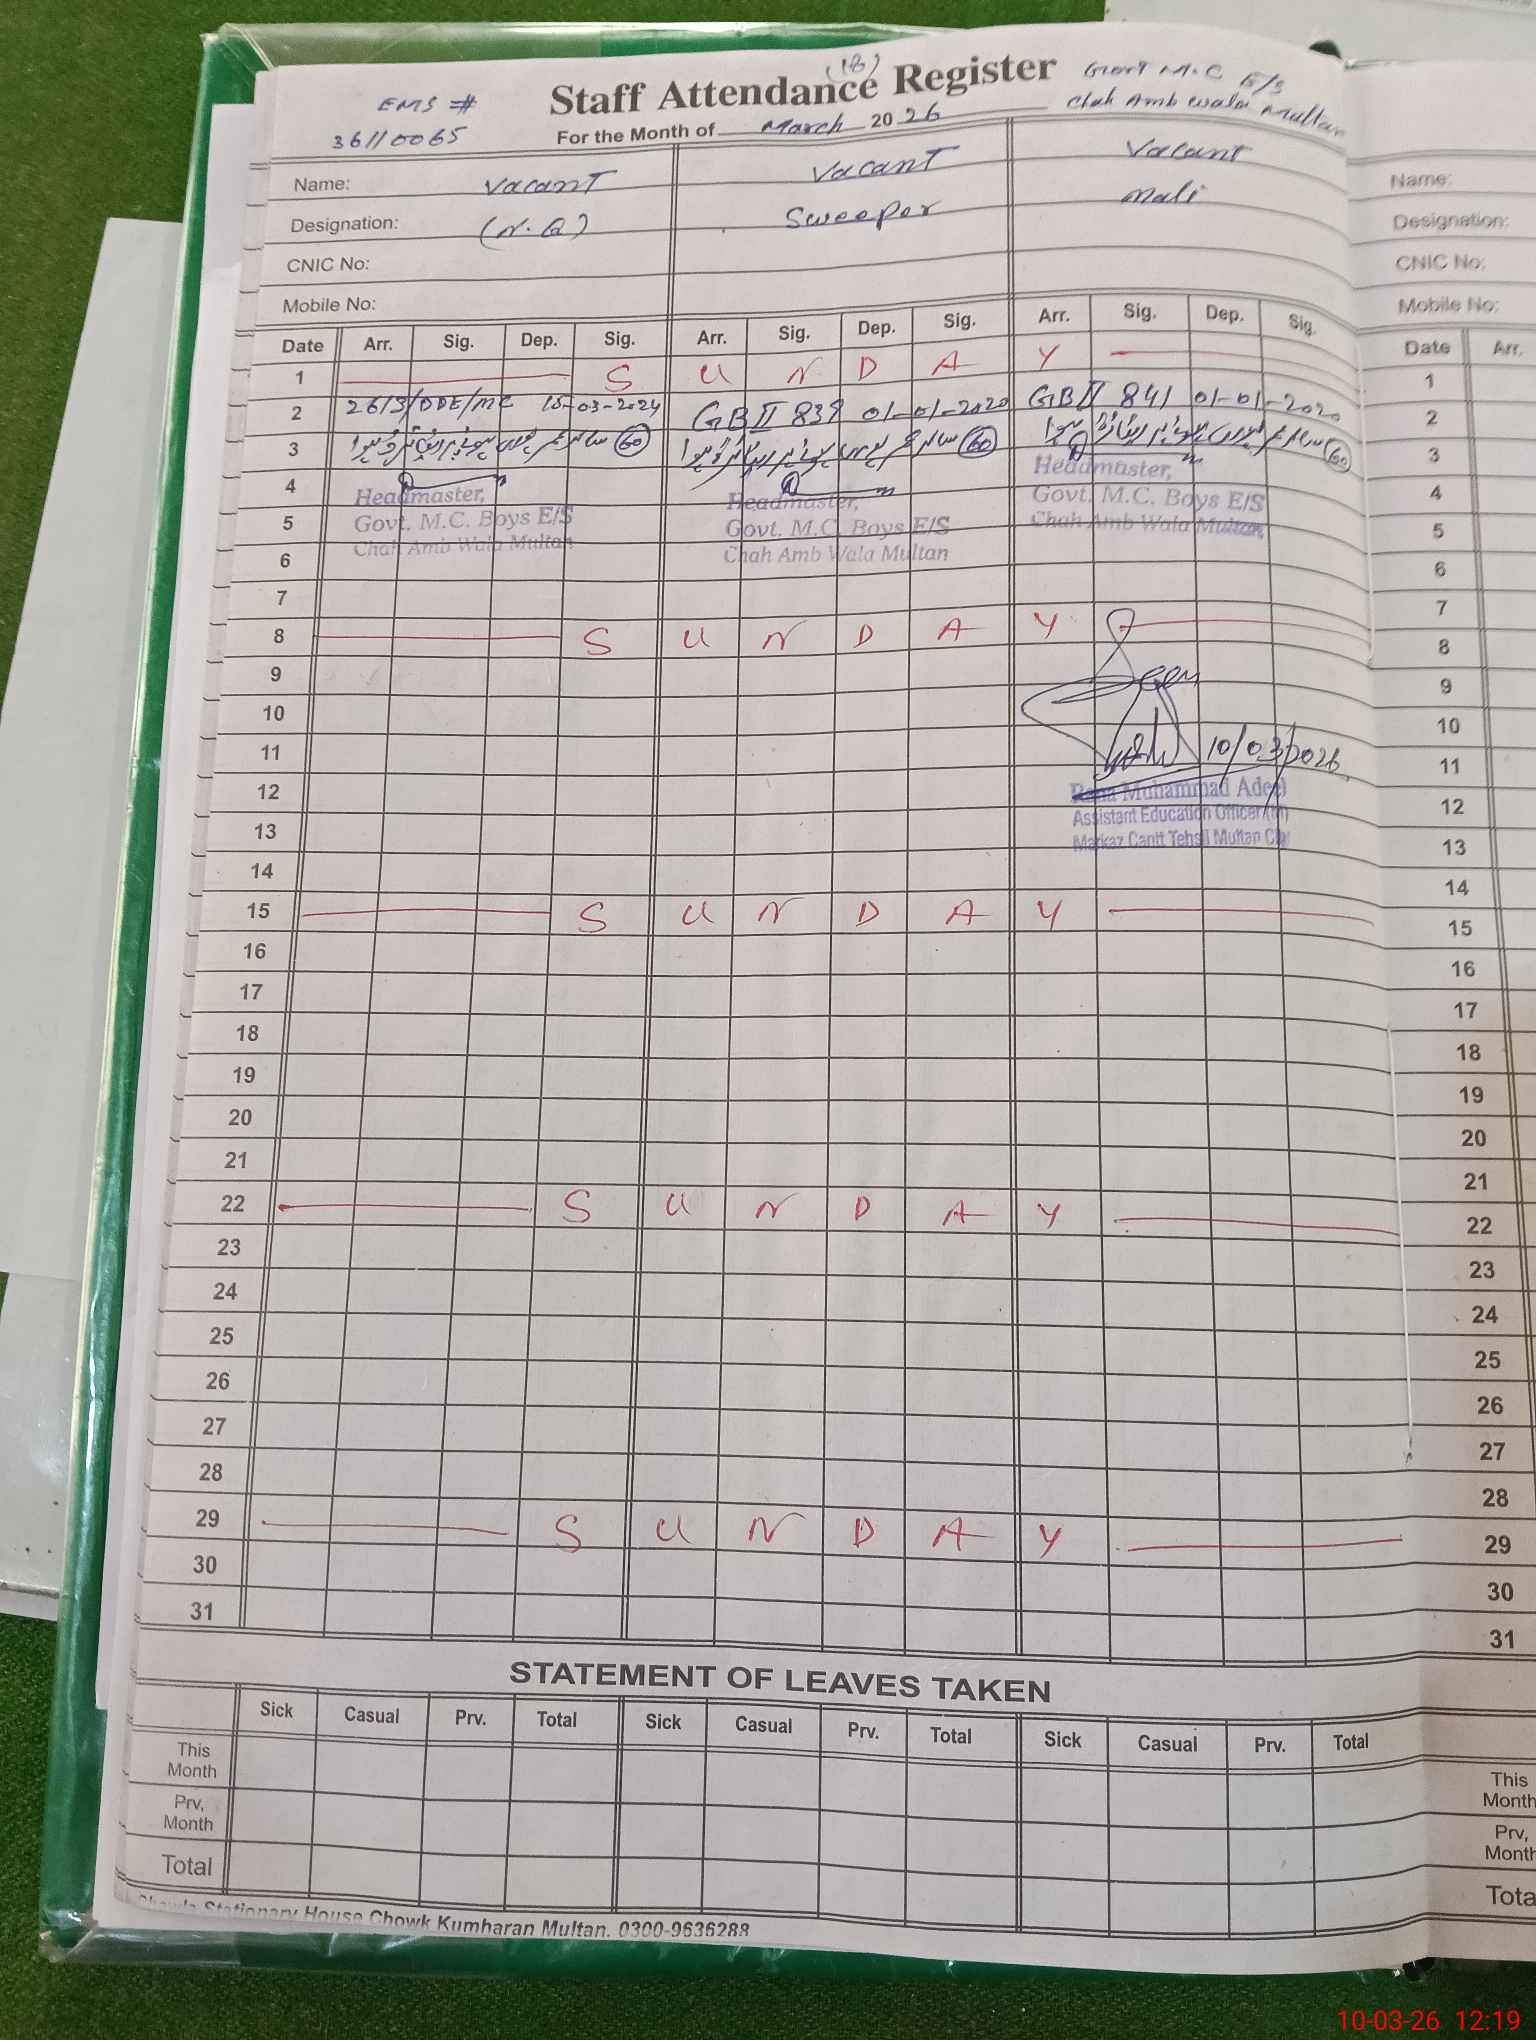 (18)
Staff Attendance Register
Govt M.C E/S
Chah Amb Wala Multan
EMS #
36110065
For the Month of March 2026
Name: Vacant Vacant Vacant
Designation: (N.Q) Sweeper Mali
CNIC No:
Mobile No:
Date Arr. Sig. Dep. Sig. Arr. Sig. Dep. Sig. Arr. Sig. Dep. Sig.
1 S U N D A Y
2 2613/DDE/MC 15-03-2024 GB II 839 01-01-2020 GB II 841 01-01-2020
3 60 سال عمر پوری ہونے پر 60 سال عمر پوری ہونے پر 60 سال عمر پوری ہونے پر
4 Headmaster, Headmaster, Headmaster,
5 Govt. M.C. Boys E/S Govt. M.C. Boys E/S Govt. M.C. Boys E/S
6 Chah Amb Wala Multan Chah Amb Wala Multan Chah Amb Wala Multan
7
8 S U N D A Y
9 Seen
10
11 10/03/2026
12 Rana Muhammad Adeel
13 Assistant Education Officer (M)
Markaz Cantt Tehsil Multan City
14
15 S U N D A Y
16
17
18
19
20
21
22 S U N D A Y
23
24
25
26
27
28
29 S U N D A Y
30
31
STATEMENT OF LEAVES TAKEN
Sick Casual Prv. Total Sick Casual Prv. Total Sick Casual Prv. Total
This Month
Prv, Month
Total
Stationary House Chowk Kumharan Multan. 0300-9636288
Name:
Designation:
CNIC No:
Mobile No:
Date Arr.
1
2
3
4
5
6
7
8
9
10
11
12
13
14
15
16
17
18
19
20
21
22
23
24
25
26
27
28
29
30
31
This
Month
Prv,
Month
Tota
10-03-26 12:19